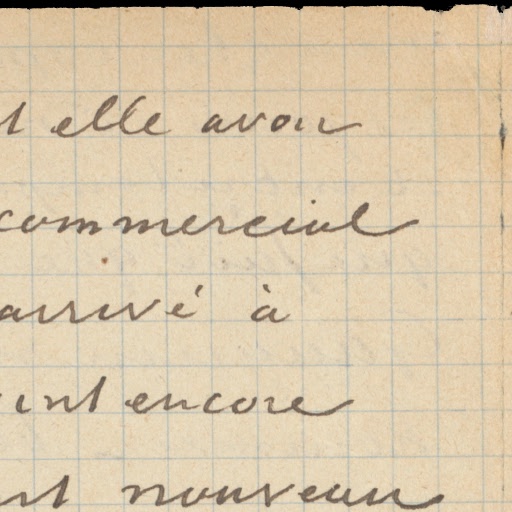 elle avoir
commercial
arrivé à
encore
nouveau